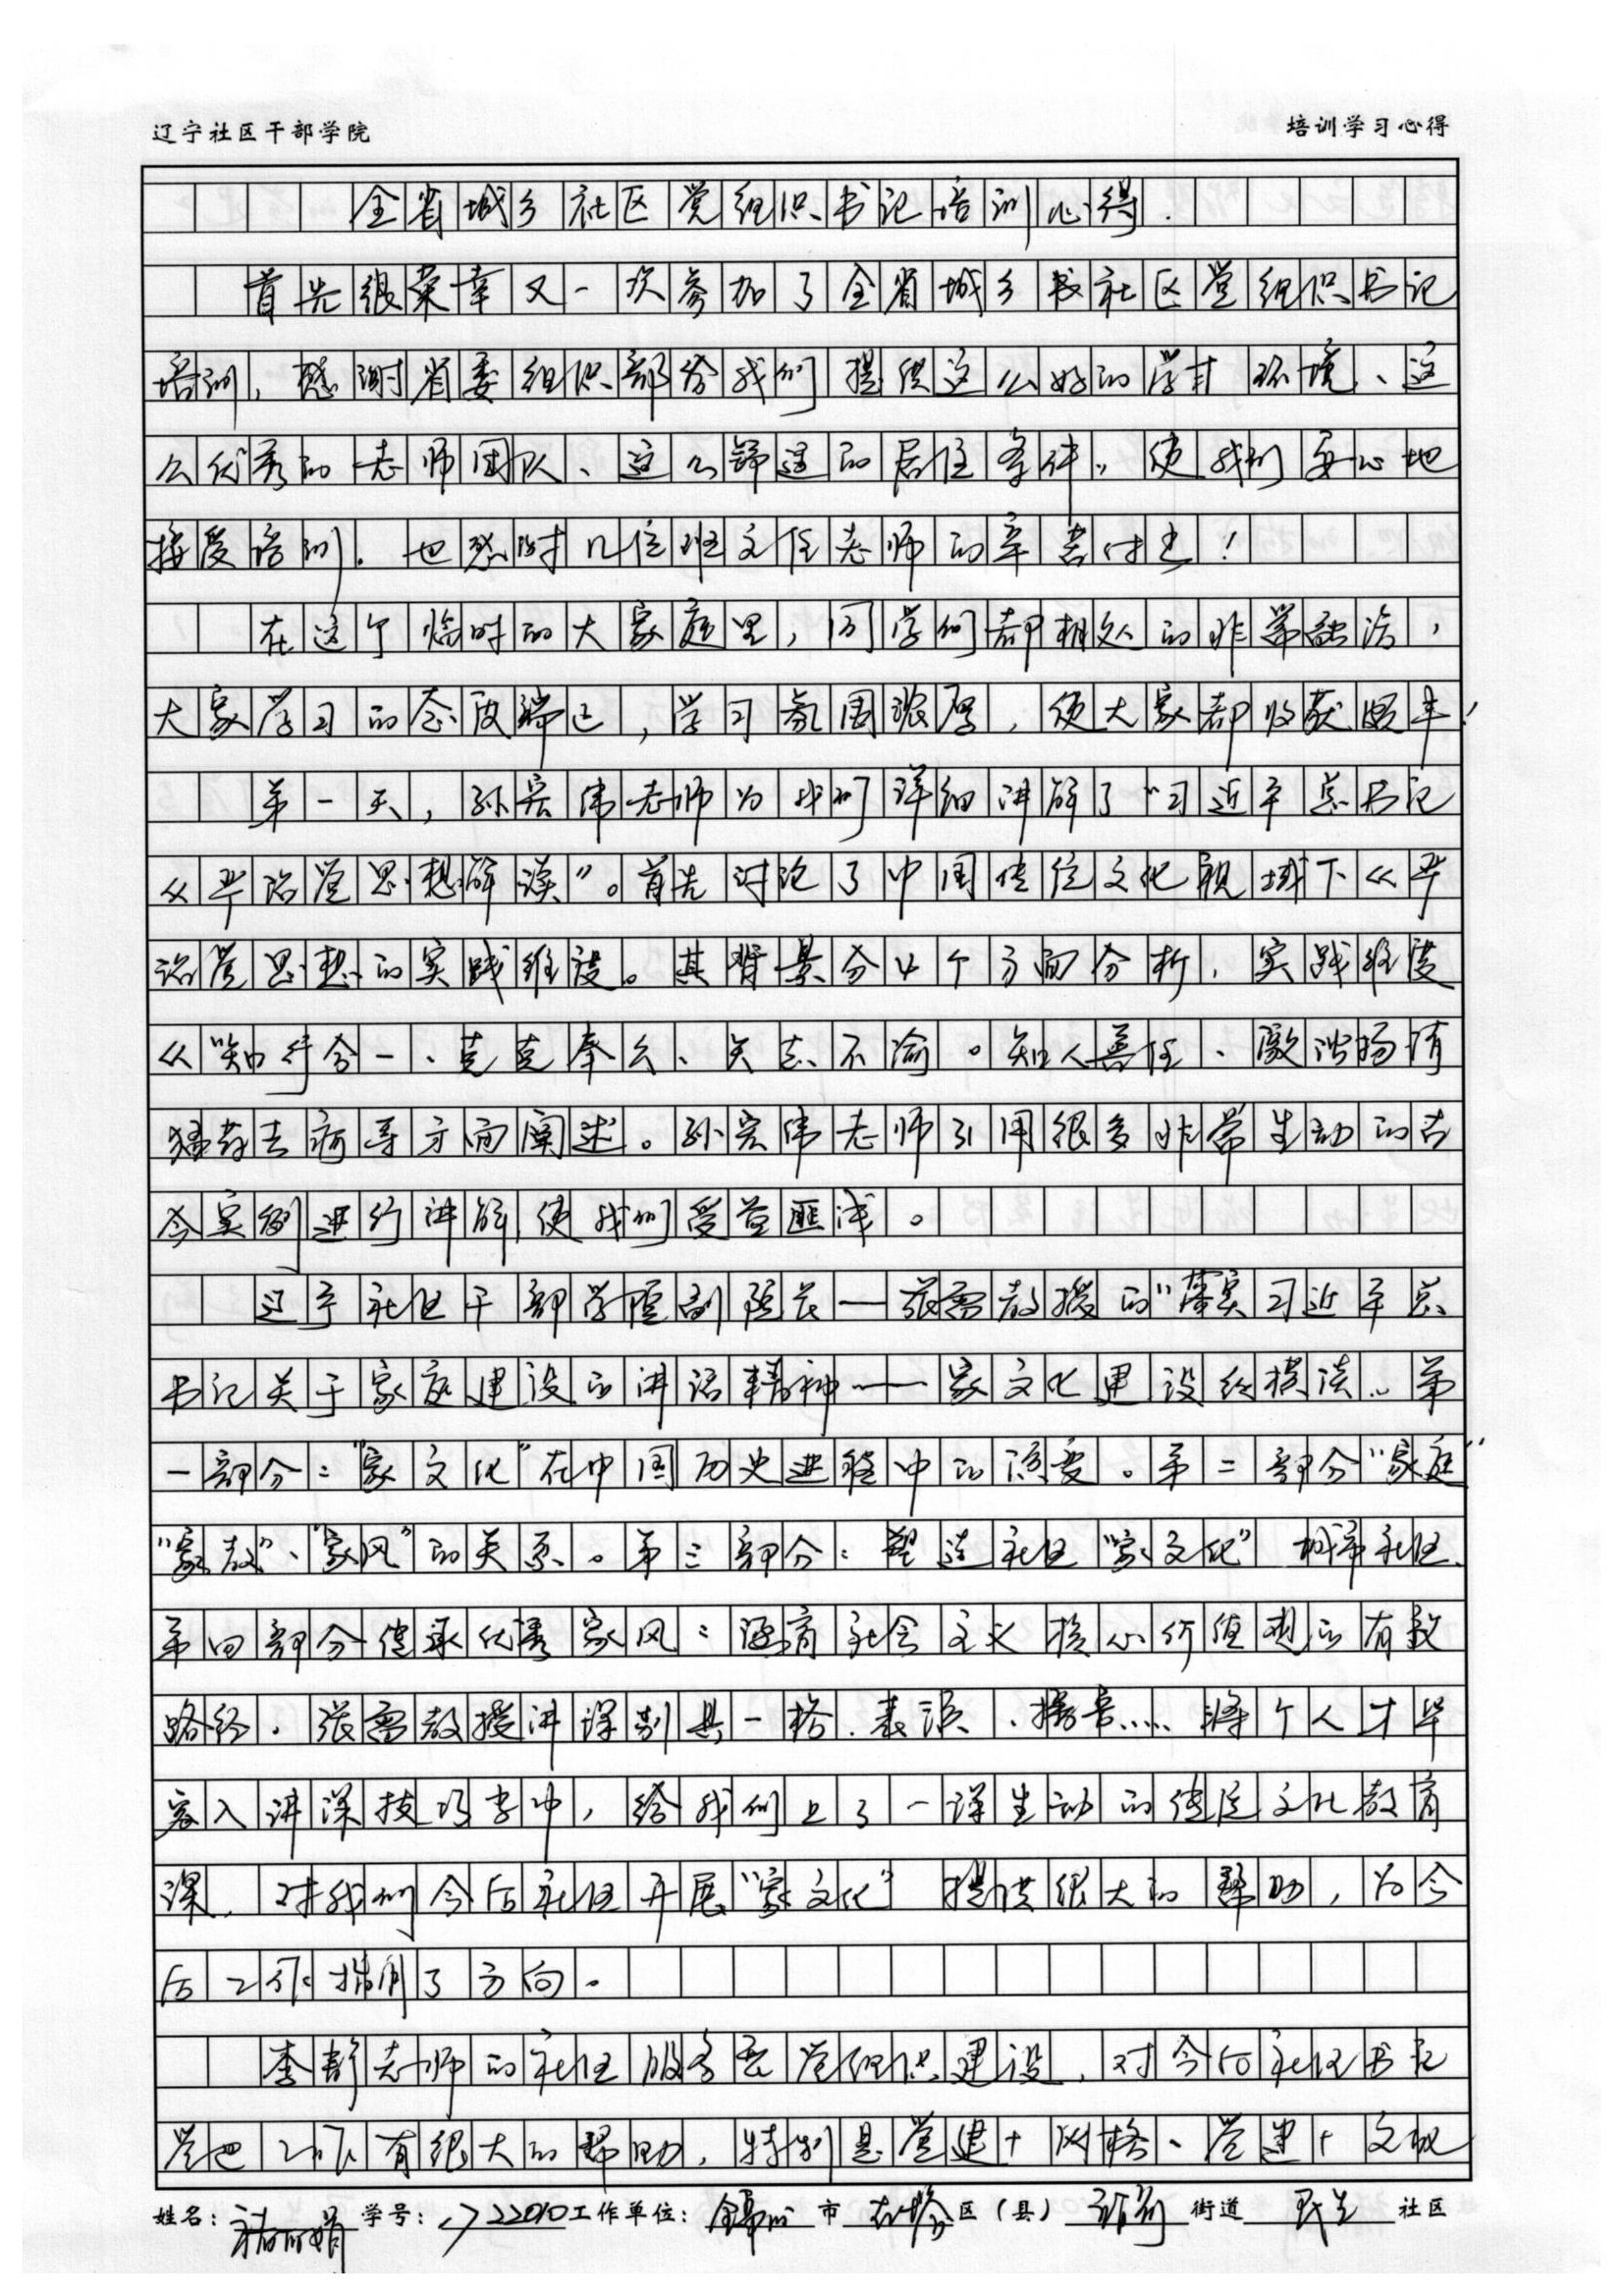 辽宁社区干部学院 培训学习心得
全省城乡社区党组织书记培训心得.
首先很荣幸又一次参加了全省城乡社区党组织书记
培训,感谢省委组织部给我们提供这么好的学习环境、这
么优秀的老师团队、这么舒适的居住条件,使我们安心地
接受培训.也感谢几位班主任老师的辛苦付出!
在这个临时的大家庭里,同学们都相处的非常融洽,
大家学习的态度端正,学习氛围浓厚,使大家都收获颇丰!
第一天,孙宏伟老师为我们详细讲解了“习近平总书记
从严治党思想解读”。首先讨论了中国传统文化视域下从严
治党思想的实践维度。其背景分4个方面分析,实践维度
从“知行合一、克克奉公、矢志不渝。知人善任、激浊扬清
猛药去疴等方面阐述。孙宏伟老师引用很多非常生动的古
今实例进行讲解,使我们受益匪浅。
辽宁社区干部学院副院长——张雷教授的“落实习近平总
书记关于家庭建设的讲话精神——家文化建设纵横谈..第
一部分:“家文化”在中国历史进程中的演变。第二部分“家庭”
“家教”、“家风”的关系。第三部分:塑造社区“家文化”构牢社区.
第四部分传承优秀家风:涵育社会主义核心价值观的有效
路径.张雷教授讲课别具一格.表演、播音....将个人才华
容入讲深技巧当中,给我们上了一课生动的传统文化教育
课.对我们今后社区开展“家文化”提供很大的帮助,为今
后工作指明了方向。
李静老师的社区服务与党组织建设,对今后社区书记
党把工作有很大的帮助.特别是党建+网格、党建+文化
姓名: 学号: 工作单位:锦州市 区(县) 街道 社区